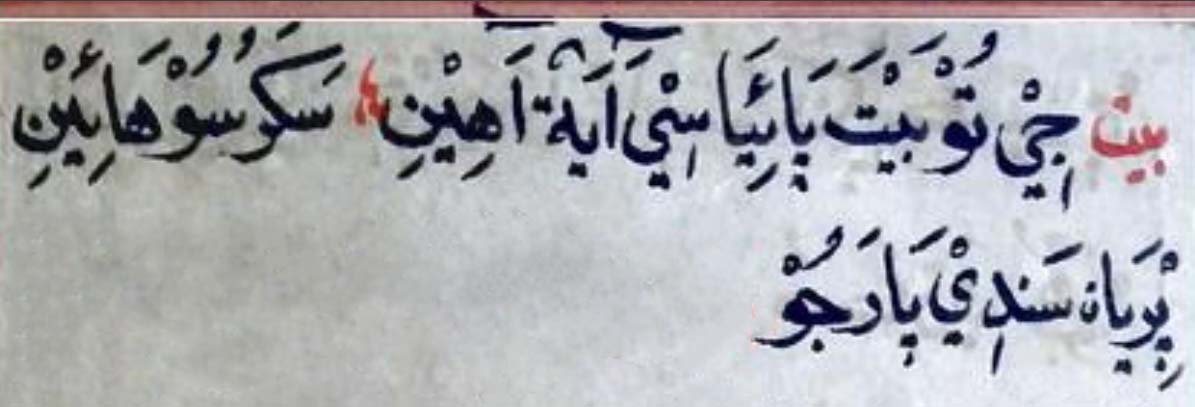 بيت جِيْ تُوْ بَيْتَ پَائِيَا سِيْ آيَة آهِيْنِ؛ سَكَرُ سُوْهَائِيْنِ
پِرْيَان سَندِيْ پَارَ جُوْ